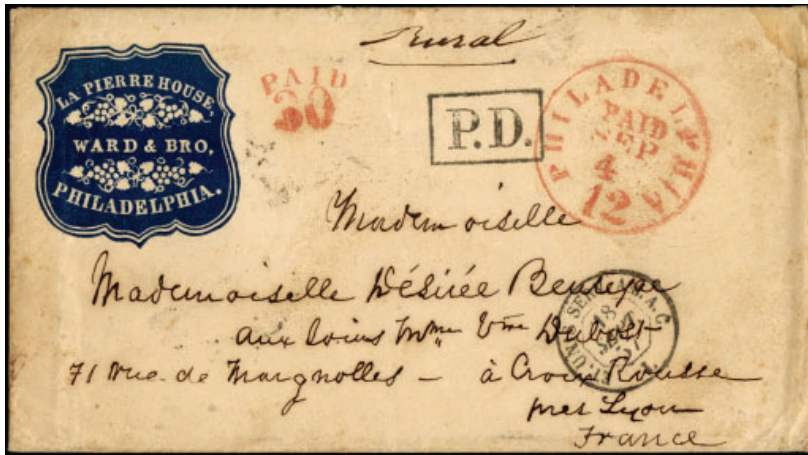 Rural
LA PIERRE HOUSE,
WARD & BRO.
PHILADELPHIA.
PAID
30
P.D.
PHILADELPHIA
PAID
SEP
4
12
Mademoiselle
Mademoiselle Désirée
aux soins Mme Vve Dubost
71 rue de Margnolles - à Croix Rousse
près Lyon
France
ET. UNIS SERV. A.C.
18
SEPT
57